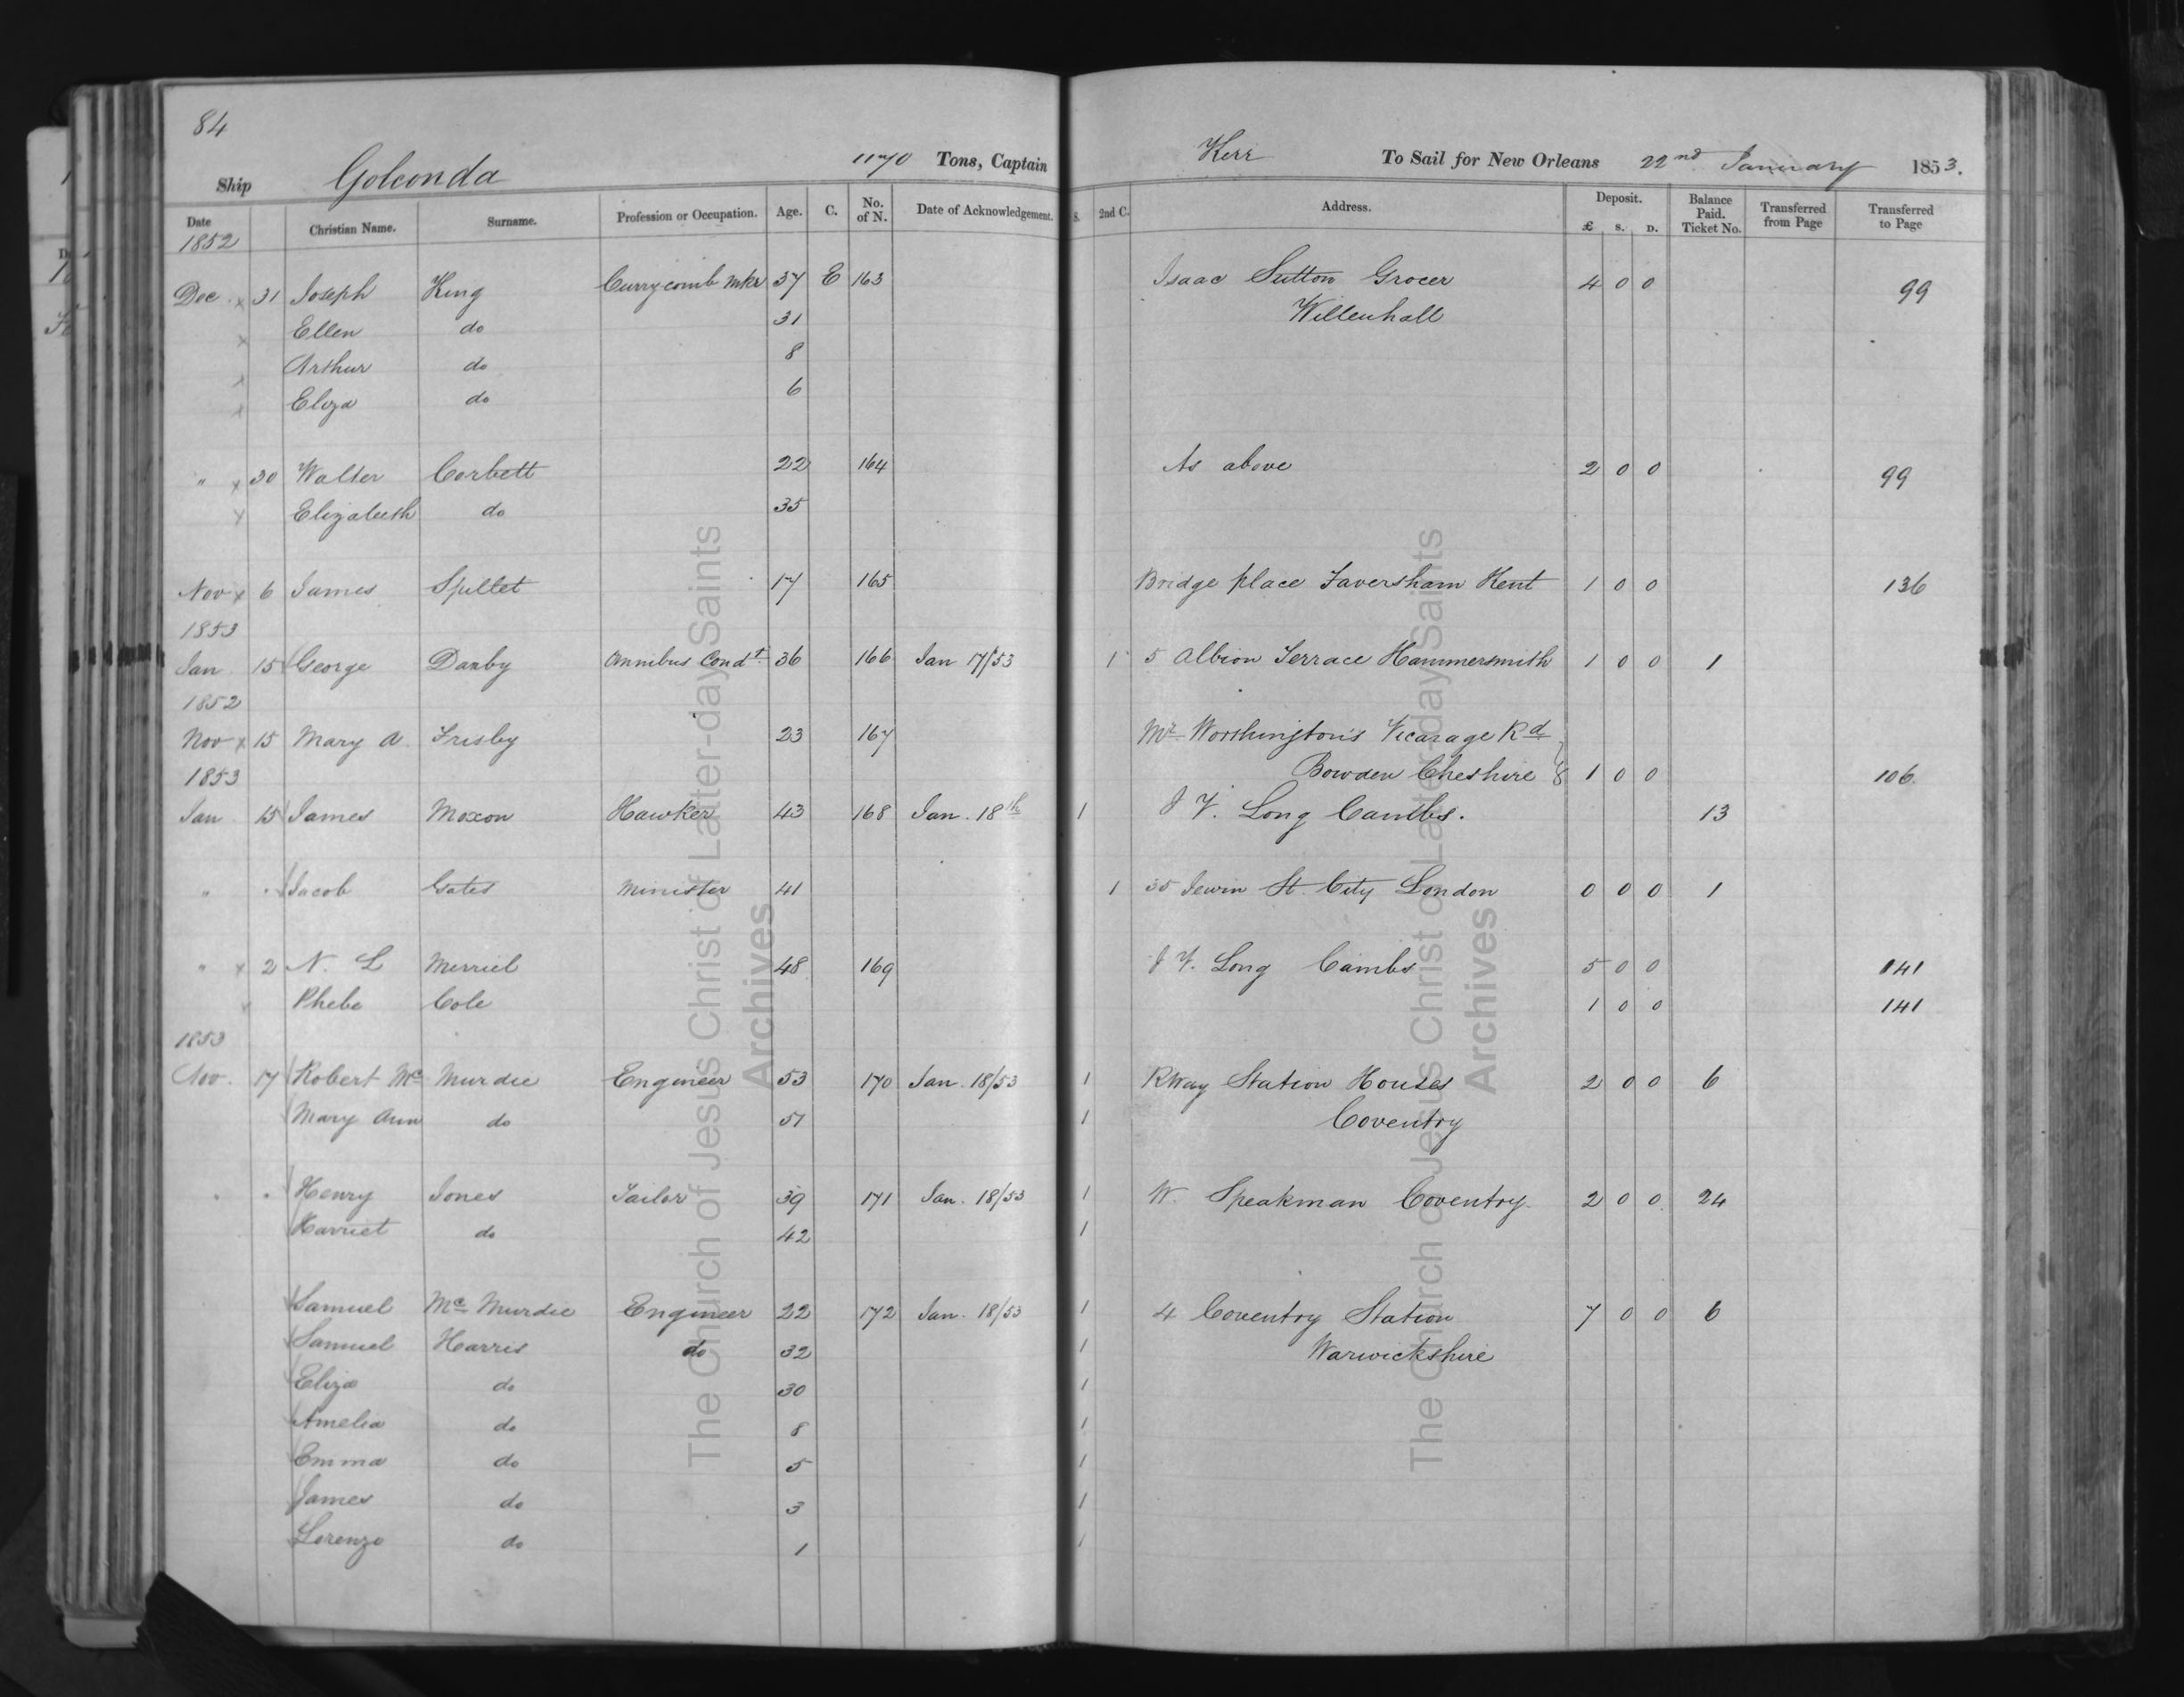 84
Ship Golconda 1170 Tons, Captain Kerr To Sail for New Orleans 22nd January 1853.
Date Christian Name. Surname. Profession or Occupation. Age. C. No. of N. Date of Acknowledgement. S. 2nd C. Address. Deposit. £ S. D. Balance Paid. Ticket No. Transferred from Page Transferred to Page
1852
Dec x 31 Joseph King Currycomb Mkr 37 E 163 Isaac Sutton Grocer 4 0 0 99
x Ellen do 31 Willenhall
x Arthur do 8
x Eliza do 6
" x 30 Walter Corbett 22 164 As above 2 0 0 99
x Elizabeth do 35
Nov x 6 James Spillet 17 165 Bridge place Faversham Kent 1 0 0 136
1853
Jan 15 George Danby Omnibus Condt. 36 166 Jan 17/53 1 5 Albion Terrace Hammersmith 1 0 0 1
1852
Nov x 15 Mary A Frisby 23 167 Mr. Worthington's Vicarage Rd
1853 Bowden Cheshire 1 0 0 106
Jan 15 James Moxon Hawker 43 168 Jan. 18th 1 J V. Long Cambs. 13
" " Jacob Gates Minister 41 1 35 Jewin St. City London 0 0 0 1
" x 2 N. L Merriel 48 169 J V. Long Cambs 5 0 0 141
x Phebe Cole 1 0 0 141
1853
Nov. 17 Robert Mc Murdie Engineer 53 170 Jan. 18/53 1 RWay Station Houses 2 0 0 6
Mary Ann do 51 1 Coventry
" " Henry Jones Tailor 39 171 Jan. 18/53 1 W. Speakman Coventry 2 0 0 24
Harriet do 42 1
Samuel Mc Murdie Engineer 22 172 Jan. 18/53 1 4 Coventry Station 7 0 0 6
Samuel Harris do 32 1 Warwickshire
Eliza do 30 1
Amelia do 8 1
Emma do 5 1
James do 3 1
Lorenzo do 1 1
The Church of Jesus Christ of Latter-day Saints
Archives
The Church of Jesus Christ of Latter-day Saints
Archives